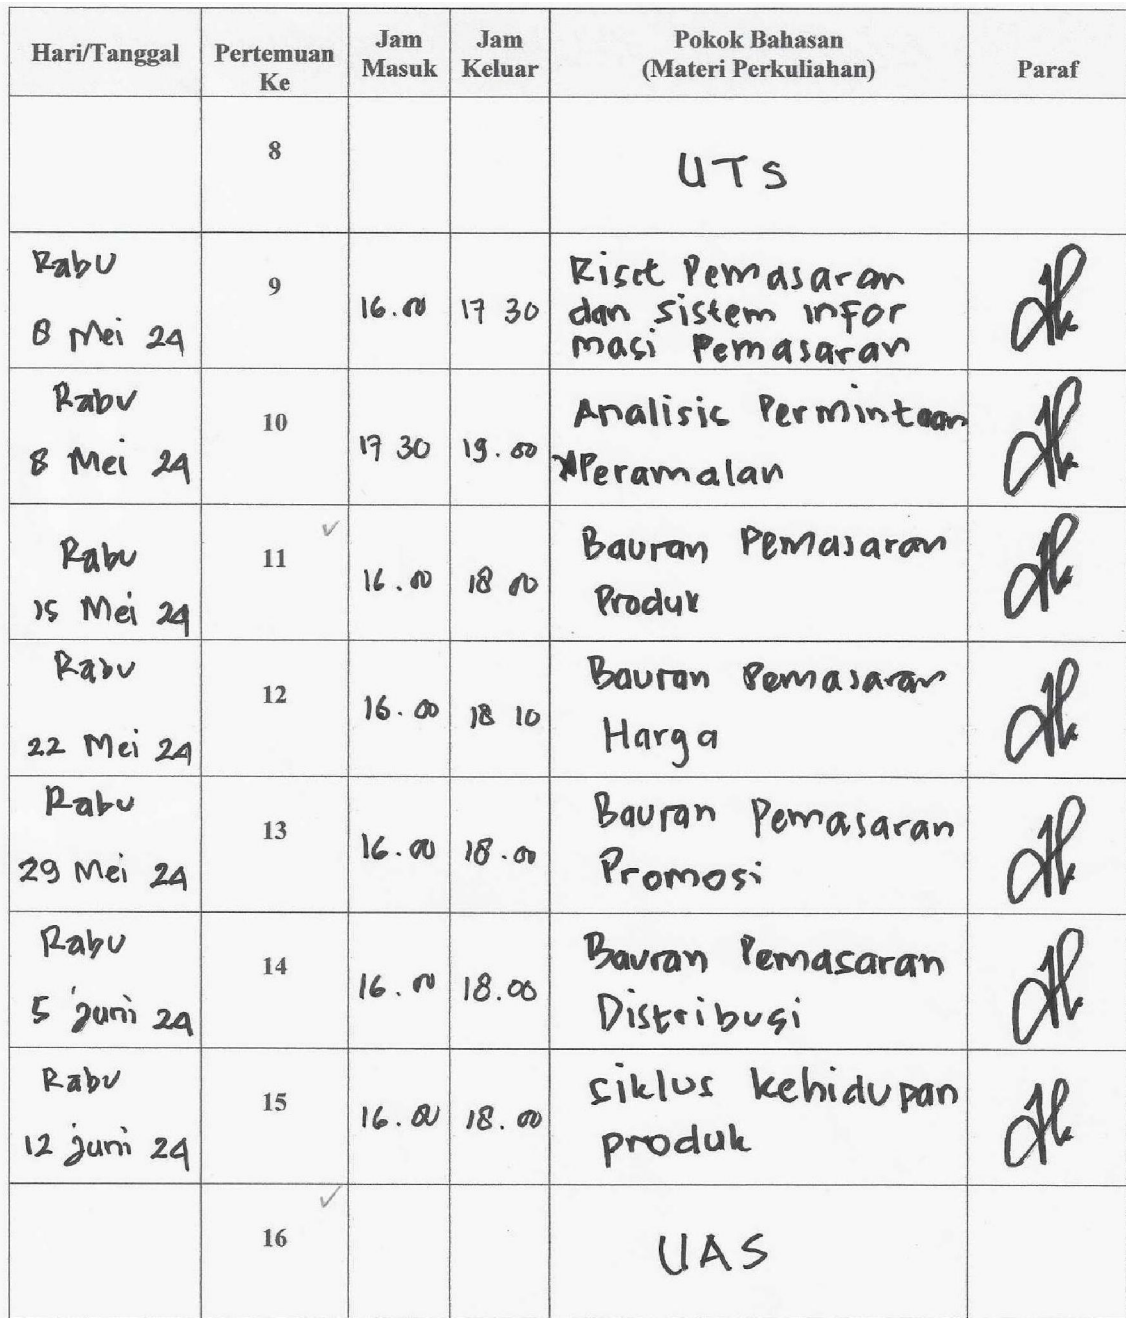 Hari/Tanggal Pertemuan Ke Jam Masuk Jam Keluar Pokok Bahasan (Materi Perkuliahan) Paraf
8 UTS
Rabu 8 Mei 24 9 16.00 17 30 Riset Pemasaran
dan sistem infor
masi Pemasaran
Rabu 8 Mei 24 10 17 30 19.00 Analisis Permintaan
Peramalan
Rabu 15 Mei 24 11 16.00 18 00 Bauran Pemasaran
Produk
Rabu 22 Mei 24 12 16.00 18 10 Bauran Pemasaran
Harga
Rabu 29 Mei 24 13 16.00 18.00 Bauran Pemasaran
Promosi
Rabu 5 Juni 24 14 16.00 18.00 Bauran Pemasaran
Distribusi
Rabu 12 Juni 24 15 16.00 18.00 siklus kehidupan
produk
16 UAS